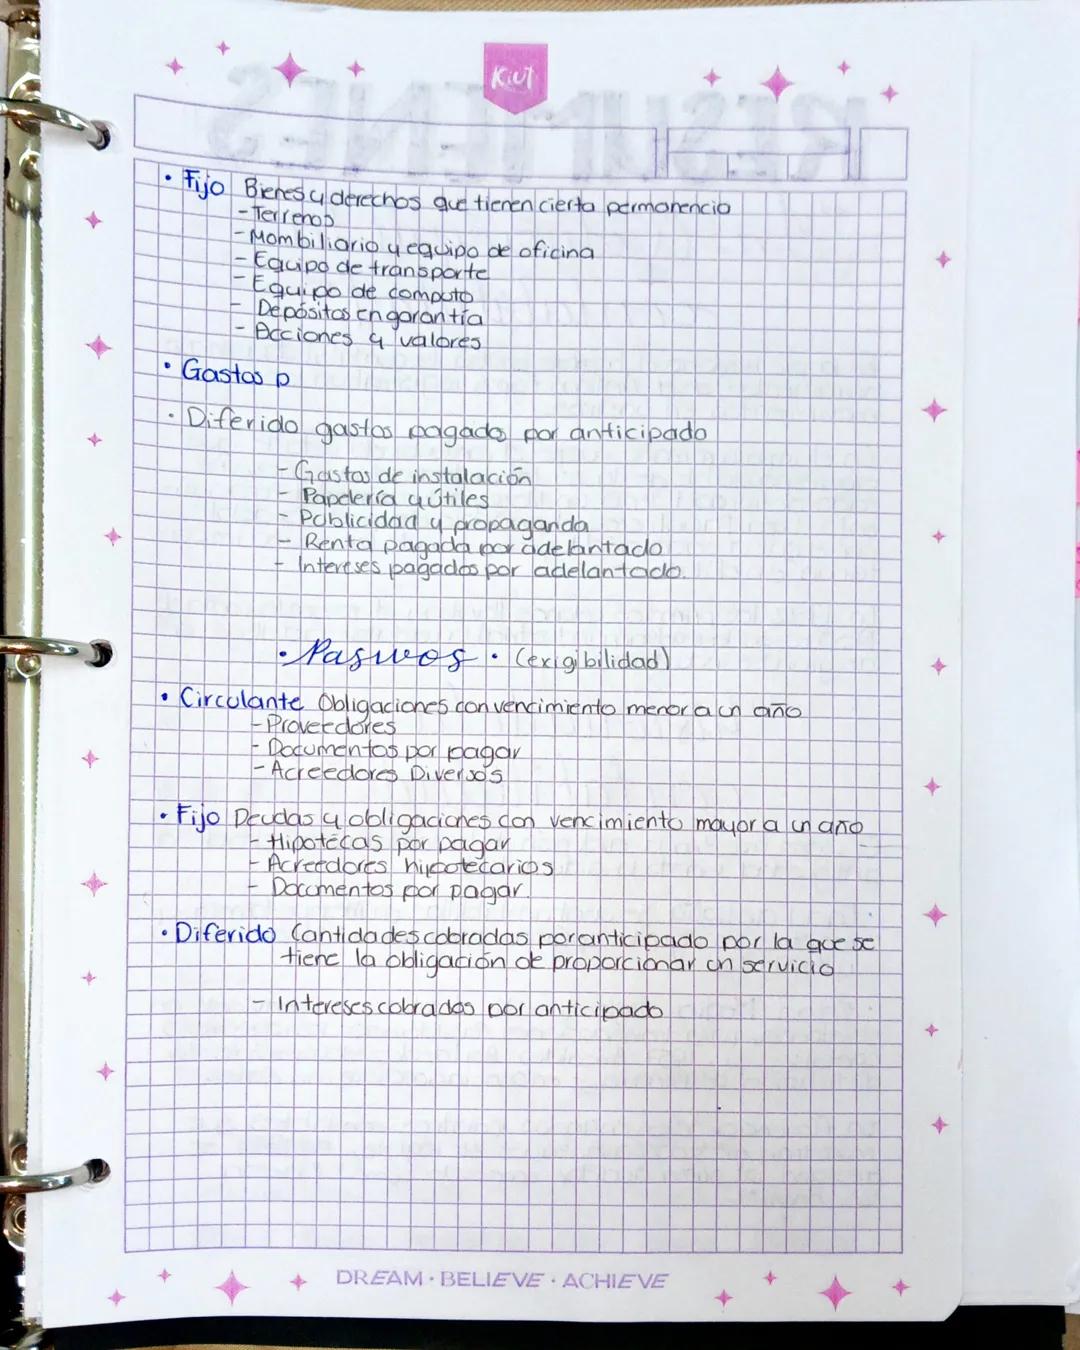 Kiut
• Fijo Bienes y derechos que tienen cierta permanencia
- Terrenos
- Mombiliario y equipo de oficina
- Equipo de transporte
- Equipo de computo
- Depósitos en garantía
- Acciones y valores
• Gastos p
• Diferido gastos pagados por anticipado
- Gastos de instalación
- Papelería y útiles
- Publicidad y propaganda
- Renta pagada por adelantado
- Intereses pagados por adelantado.
• Pasivos • (exigibilidad)
• Circulante Obligaciones con vencimiento menor a un año
- Proveedores
- Documentos por pagar
- Acreedores Diversos
• Fijo Deudas y obligaciones con vencimiento mayor a un año
- Hipotecas por pagar
- Acreedores hipotecarios
- Documentos por pagar.
• Diferido Cantidades cobradas por anticipado por la que se
tiene la obligación de proporcionar un servicio
- Intereses cobrados por anticipado
DREAM • BELIEVE • ACHIEVE